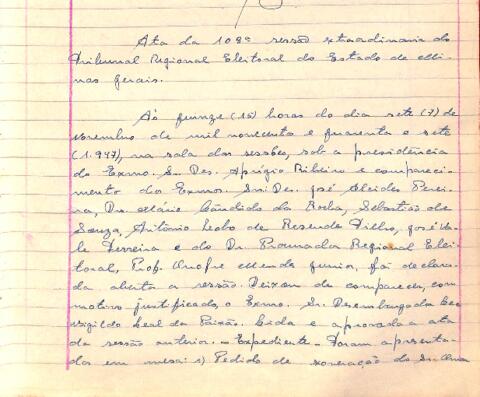 Ata da 108ª sessão extraordinaria do
Tribunal Regional Eleitoral do Estado de Mi-
nas Gerais.
Ás quinze (15) horas do dia sete (7) de
novembro de mil novecento e quarenta e sete
(1.947), na sala das sessões, sob a presidência
do Exmo. Sr. Des. Aprigio Ribeiro e compareci-
mento dos Exmos. Srs. Des. José Alcides Perei-
ra, Dr. Mário Cândido da Rocha, Sebastião de
Souza, Antônio Leobo de Resende Filho, José Va-
le Ferreira e do Dr. Procurador Regional Elei-
toral, Prof. Onofre Mendes Junior, foi declara-
da aberta a sessão. Deixou de comparecer, com
motivo justificado, o Exmo. Sr. Desembargador Leo-
vigildo Leal da Paixão. Lida e aprovada a ata
da sessão anterior. - Expediente - Foram apresenta-
dos em mesa: 1) Pedido de exoneração do